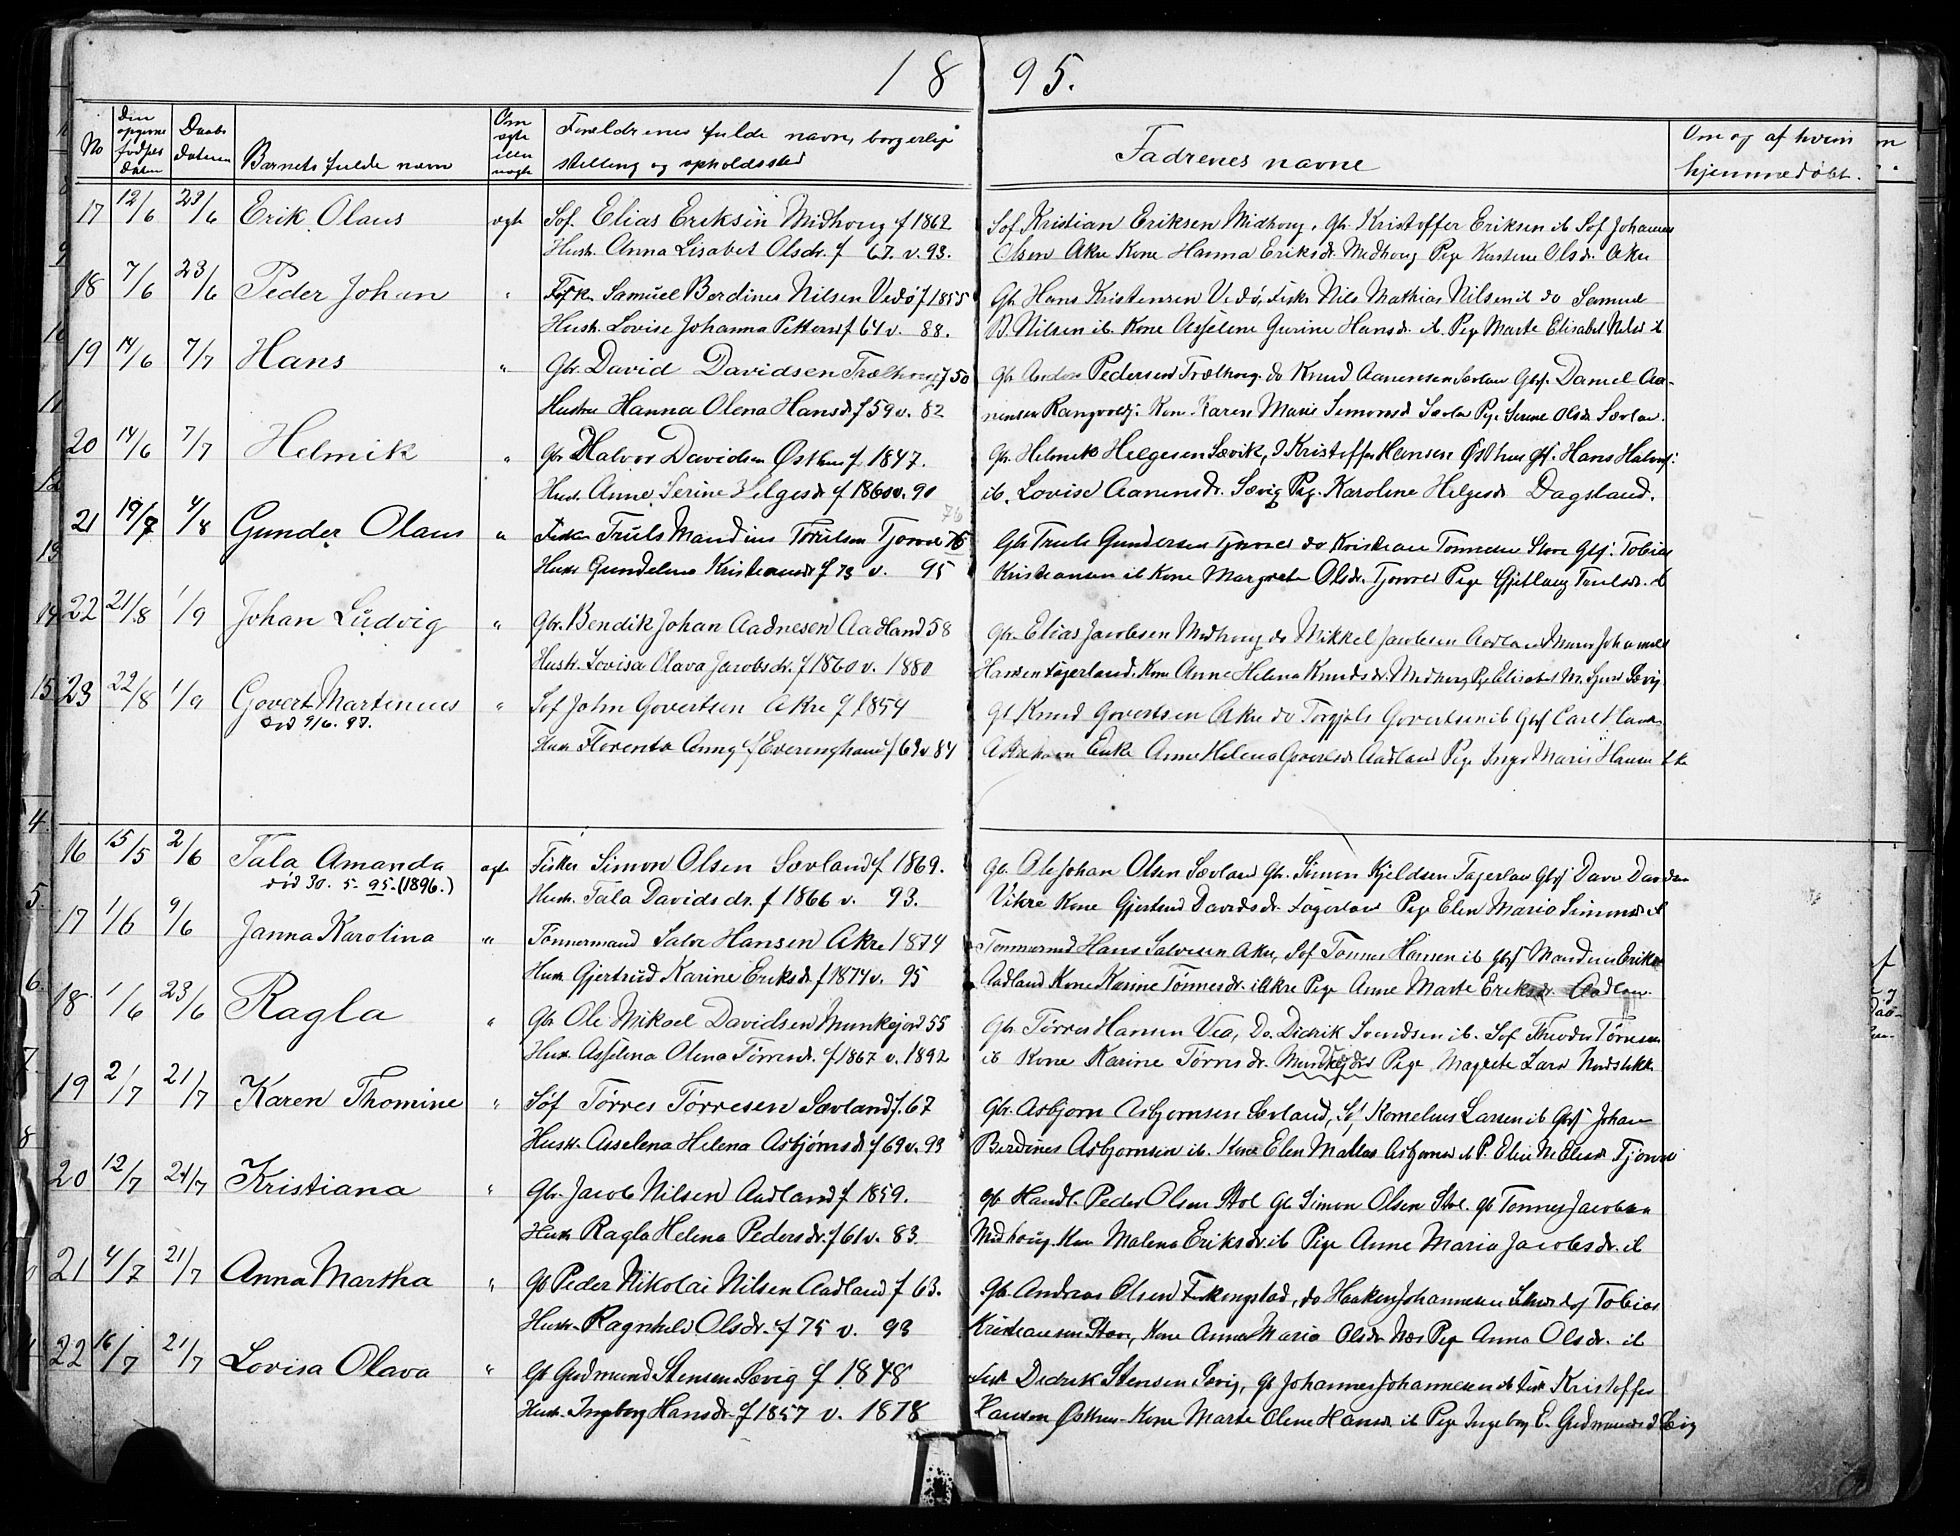 1895.
No
Den opgivne fødsels daten
Daabs datoen
Barnets fulde navn
Om ægte eller uægte
Forældrenes fulde navn, borgerlige
stilling og opholdssted
Fadrenes navne
Om og af hvem
hjemmedøbt.
17 12/6 23/6 Erik Olaus ægte Søf. Elias Eriksen Midhoug f 1862
Hustr. Anna Lisabet Olsdr. f 67. v. 93.
Søf Kristian Eriksen Midhoug, Gbr. Kristoffer Eriksen ib Søf Johannes
Olsen Akre Kone Hanna Eriksdr. Midhoug Pige Kirstine Olsdr. Akre
18 7/6 23/6 Peder Johan " Fisk. Samuel Berdines Nilsen Vedø f 1855
Hustr. Lovise Johanna Pettersd f 64 v. 88.
Gbr Hans Kristensen Vedø, Fisk. Nils Mathias Nilsen ib do Samuel
B. Nilsen ib. Kone Asselene Gurine Hansdr. ib. Pige Marte Elisabet Nilsd ib
19 14/6 7/7 Hans " Gbr. David Davidsen Trælhoug f 50
Hustru Hanna Olena Hansdr f 59 v. 82
Gbr Pedersen Trælhoug do Knud Aanensen Sævlan Gbsf. Daniel Aa-
nensen Kone Karen Marie Simonsd Sævla Pige Serine Olsdr Sævlan.
20 14/6 7/7 Helmik " Gbr Halvor Davidsen Østhus f 1847.
Hust. Anne Serine Helgesdr f 1860 v. 90
Gbr Helmik Helgesen Sævik, Kristoffer Hansen Østhus Gbsf. Hans Halvors.
ib. Lovise Aanensdr. Sævig Pig. Karoline Helgesdr Dagsland.
21 19/7 4/8 Gunder Olaus " Fisker Truls Mandius Trulsen Tjoved 75 76
Hustr Gundelena Kristiansdr f 73 v. 95
Gbr Truls Gundersen Tjoved do Kristian Tønnesen Stove Gbsf. Tobias
Kristiansen ib Kone Margrete Olsdr. Tjoved Pige Gjitlaug Trulsdr. ib
22 21/8 1/9 Johan Ludvig " Gbr. Bendik Johan Aadnesen Aadland 58
Hustr. Lovisa Olava Jacobsdr. f 1860 v. 1880
Gbr. Elias Jacobsen Midhoug do Mikkel Jacobsen Aadland Johannes
Hansen Fagerland. Kone Anne Helena Knudsdr. Midhoug Pg Elisabet M. Sævig
23 22/8 1/9 Govert Martinius " Søf John Govertsen Akre f 1854
død 9/6. 97.
Hustr Florenta Anng f Everingham f 63 v 84
Gb Knud Govertsen Akre do Torgjøls Govertsen ib Gbsf Carl
Enke Anne Helena Govertsdr Aadland Pige Inger Marie Hansen
16 15/5 2/6 Tala Amanda ægte Fisker Simon Olsen Sævland f 1869.
død 30. 5. 95. (1896.)
Hustr. Tala Davidsdr. f 1866 v. 93.
Gb. Ole Johan Olsen Sævland Gbr. Simon Kjeldsen Fagerlan Gbsf David Davidsen
Vikre Kone Gjertrud Davidsdr. Fagerlan Pige Elen Maria Simonsdr ib
17 1/6 9/6 Janna Karolina " Tønnermand Salve Hansen Akre 1874
Hustr Gjertrud Karine Eriksdr f 1874 v. 95
Tønnermd Hans Salvesen Akre, Søf Tønnes Hansen ib Gbsf Mandius Eriksen
Aadland Kone Karine Tønnesdr. Akre Pige Anne Marte Eriksdr. Aadlan
18 1/6 23/6 Ragla " Gbr Ole Mikael Davidsen Munkejord 55
Hust. Asselena Olena Tørresdr. f 1867 v. 1892
Gbr. Tørres Hansen Vea, Do. Didrik Svendsen ib. Søf Theodor Tørresen
ib Kone Karine Tørresdr. Munkejord Pige Magrete Larsd Nordstokke
19 2/7 21/7 Karen Thomine " Søf Tørres Tørresen Sævland f. 67
Hustr. Asselena Helena Asbjørnsdr f 69 v. 93
Gbr. Asbjørn Asbjørnsen Sævland, Søf Kornelius Larsen ib Gbsf Johan
Berdines Asbjørnsen ib. Kone Elen Malene Asbjørnsd ib P. Elen M. Olesd Tjoved
20 12/7 21/7 Kristiana " Gbr. Jacob Nilsen Aadland f 1859.
Hustr Ragla Helena Pedersdr. f 61 v. 83
Gbr Handl. Peder Olsen Stol Gb Simon Olsen Stol. Gb Tønnes Jacobsen
Midhoug. Kone Malena Eriksdr. ib Pige Anne Maria Jacobsdr. ib
21 4/7 21/7 Anna Martha " Gb Peder Nikolai Nilsen Aadland f 63.
Hustr. Ragnhild Olsdr. f 75 v. 93
Gbr. Andreas Olsen Ferkingstad, do Haaken Johannesen Tobias
Kristiansen Stave, Kone Anna Maria Olsdr Næs Pige Anna Olsdr. ib
22 16/7 21/7 Lovisa Olava " Gb Gudmund Stensen Sævig f 1848
Hustr. Ingeborg Hansdr. f 1857 v. 1878
Fisk Didrik Stensen Sævig, Gb Johannes Johannesen ib Fisk Kristoffer
Hansen Østhus Kone Marte Olene Hansd ib Pige Ingeborg E. Gudmundsd Sævig